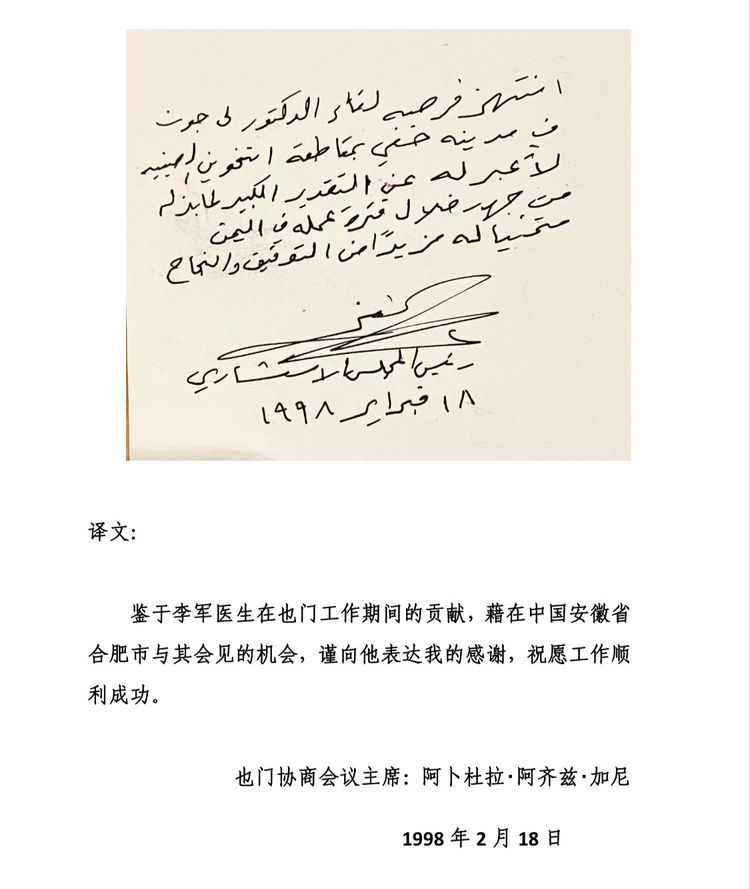 انتهز فرصه لقاء الدكتور لى جون
في مدينه خفي بمقاطعة انخوين الصينيه
لأعبر له عن التقدير الكبير لما بذله
من جهد خلال فترة عمله في اليمن
متمنيا له مزيدًا من التوفيق والنجاح
رئيس المجلس الاستشاري
١٨ فبراير ١٩٩٨
译文：
鉴于李军医生在也门工作期间的贡献，藉在中国安徽省
合肥市与其会见的机会，谨向他表达我的感谢，祝愿工作顺
利成功。
也门协商会议主席：阿卜杜拉·阿齐兹·加尼
1998 年 2 月 18 日